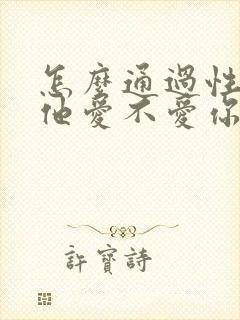 怎麼通過性
他愛不愛你
許寶詩